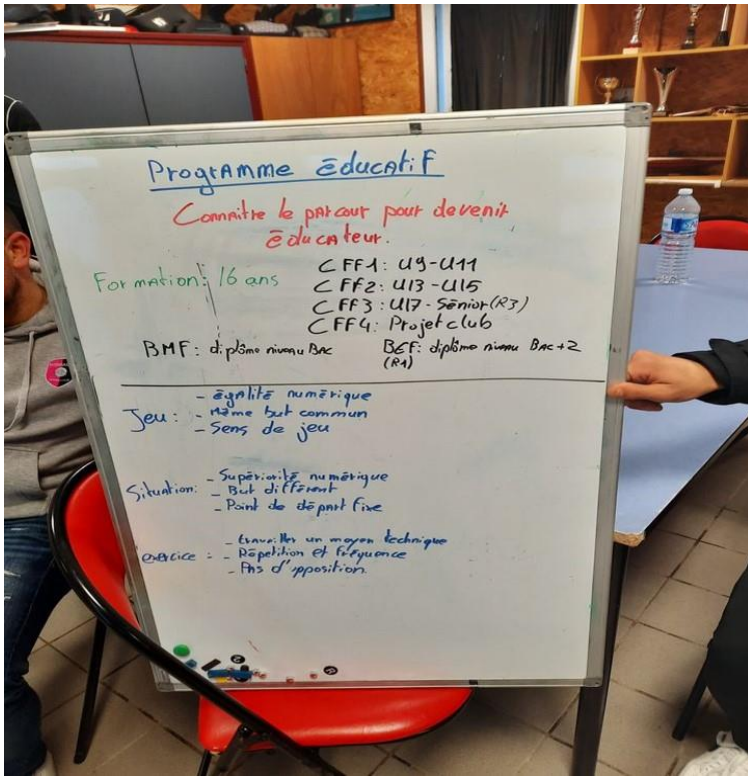 Programme éducatif
Connaitre le parcour pour devenir
éducateur.
Formation: 16 ans
CFF1: U9-U11
CFF2: U13-U15
CFF3: U17-Sénior(R3)
CFF4: Projet club
BMF: diplôme niveau BAC
BEF: diplôme niveau BAC+2
(R1)
Jeu: - égalité numérique
- Même but commun
- Sens de jeu
Situation: - Supériorité numérique
- But différent
- Point de départ fixe
exercice: - travailler un moyen technique
- Répétition et fréquence
- Pas d'opposition